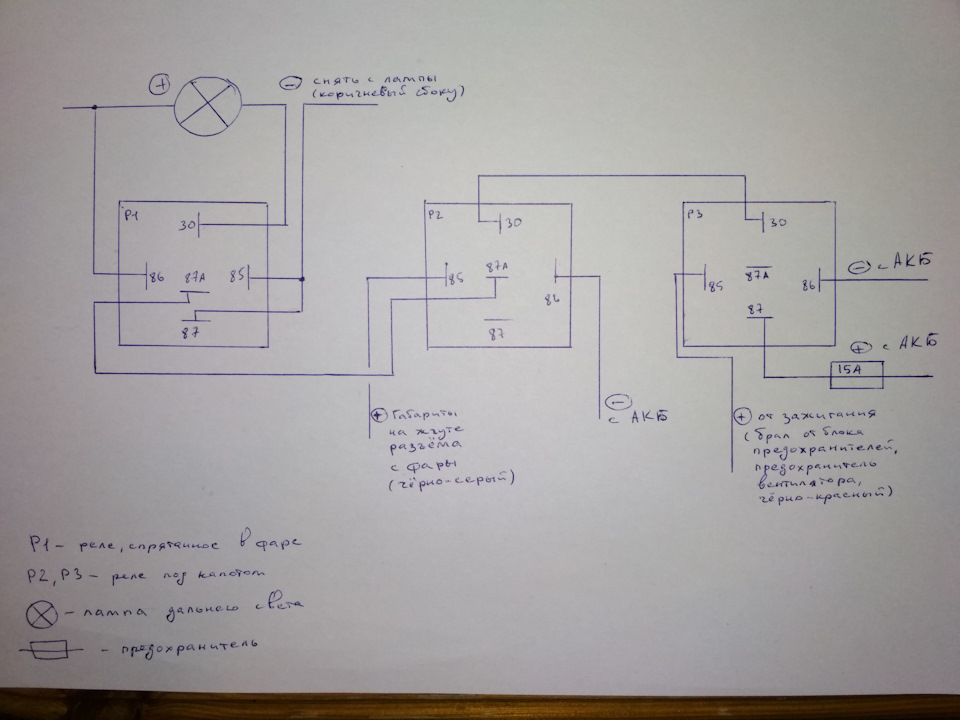 +
−
снять с лампы
(коричневый сбоку)
P1
30
86
87A
85
87
P2
30
87A
85
86
87
P3
30
87A
85
86
87
− с АКБ
+ с АКБ
15A
+ Габариты
на жгуте
разъёма
с фары
(чёрно-серый)
−
с АКБ
+ от зажигания
(брал от блока
предохранителей,
предохранитель
вентилятора,
чёрно-красный)
P1 – реле, спрятанное в фаре
P2, P3 – реле под капотом
– лампа дальнего света
– предохранитель